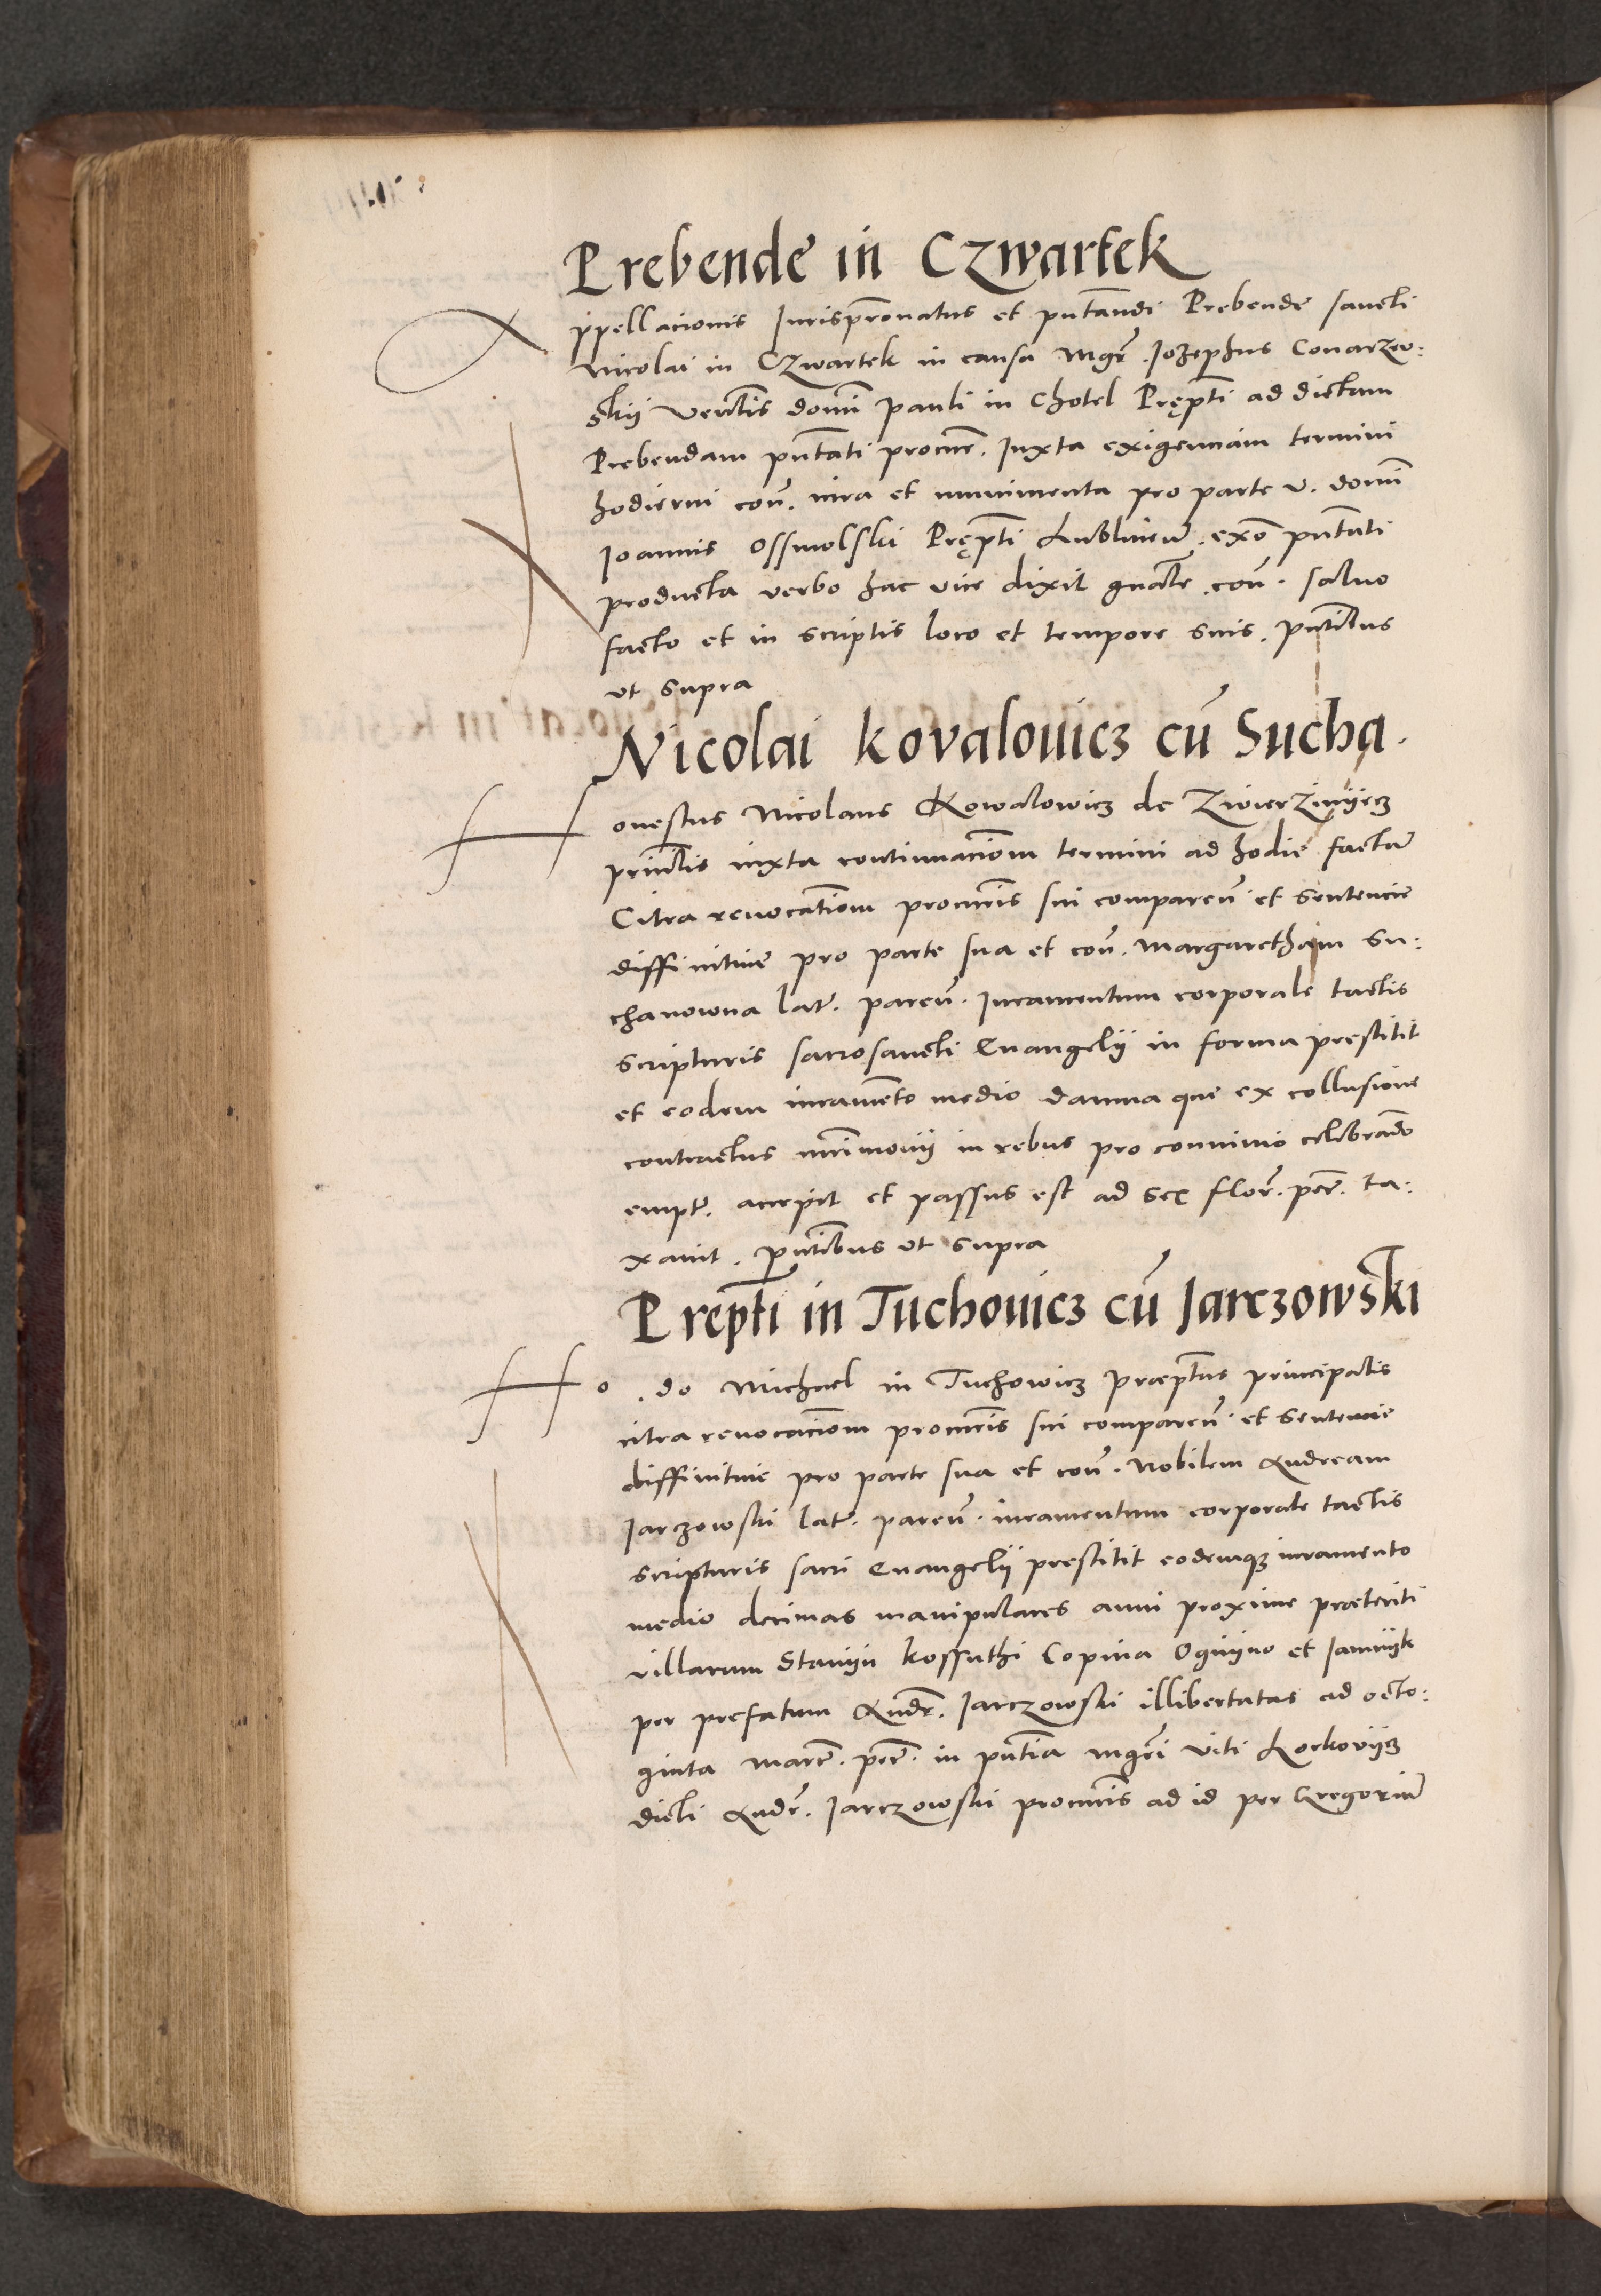 Prebende in Czwartek
Appellacionis Jurisp̄ronatus et pn̄tandi Prebende sancti
Nicolai in Czwartek in causa Mgr̄ Jozephus Conarzew:
skij Ven̄tis domi Pauli in Chotel Pręp̄ti ad dictam
Prebendam pn̄tati procur̄. Juxta exigenciam termini
hodierni con̄. iura et munimenta pro parte v. domi
Joannis Ossmolski Pręp̄ti Lublinen̄. exo pn̄tati
producta verbo hac vice dixit gn̄ale. con̄. saluo
facto et in scriptis loco et tempore suis. pn̄tibus
vt supra
Nicolai Kovalouicz cū Sucha.
Honestus Nicolaus Kowalowicz de Zwierzinijecz
prin̄lis iuxta continuaciom termini ad hodie factā
Citra reuocatiom procur̄is sui comparen̄ et sentencie
diffinitiue pro parte sua et con̄. Margaretham Su:
chanowna lat̄. paren̄. Juramentum corporale tactis
scripturis sacrosancti Euangelij in forma prestitit
et eodem iuramēto medio damna que ex collusione
contractus mr̄imonij in rebus pro conuiuio celebrādo
empt̄. accepit et passus est ad sex flor̄. pecc̄. ta:
xauit. pn̄tibus vt supra
Prep̄ti in Tuchouicz cū Jarczowski
Ho. do Michael in Tuchowicz præp̄tus principalis
citra reuocaciom procur̄is sui comparen̄. et sentencie
diffinitiue pro parte sua et con̄. Nobilem Andream
Jarczowski lat̄. paren̄. iuramentum corporale tactis
scripturis sacri Euangelij prestitit eodemqȝ iuramento
medio decimas manipulares anni proxime præteriti
villarum Stanijn Kossuthi Copina Ognijwo et Jamijk
per prefatum Andr̄. Jarczowski illibertatas ad octo:
ginta marc̄. pecc̄. in pn̄tia mgr̄i Viti Korkovijcz
dicti Andr̄. Jarczowski procur̄is ad id per Gregoriū